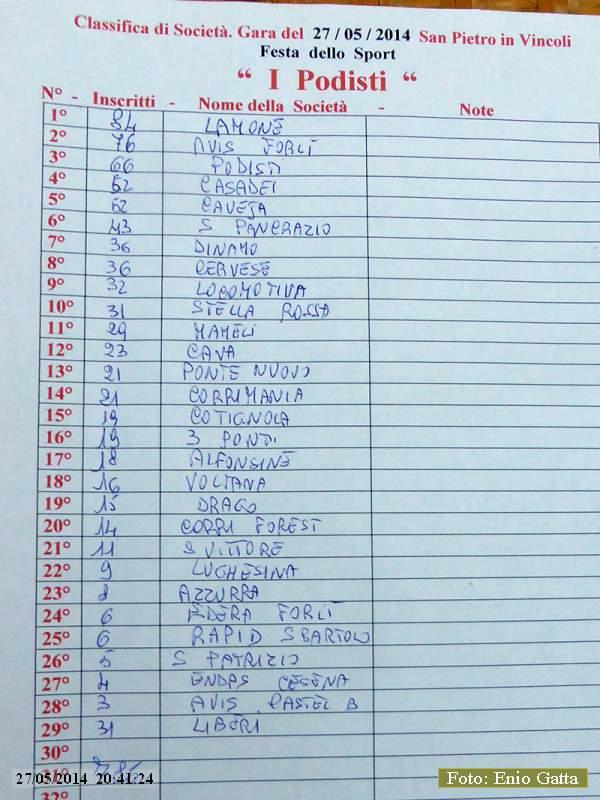 Classifica di Società. Gara del 27 / 05 / 2014 San Pietro in Vincoli
Festa dello Sport
“ I Podisti “
N° - Inscritti - Nome della Società - Note
1° 84 LAMONE
2° 76 AVIS FORLÌ
3° 66 PODISTI
4° 52 CASADEI
5° 52 CAVEJA
6° 43 S PANCRAZIO
7° 36 DINAMO
8° 36 CERVESE
9° 32 LOCOMOTIVA
10° 31 STELLA ROSSA
11° 29 MAMELI
12° 23 CAVA
13° 21 PONTE NUOVO
14° 21 CORRIMANIA
15° 19 COTIGNOLA
16° 19 3 PONTI
17° 18 ALFONSINE
18° 16 VOLTANA
19° 15 DRAGO
20° 14 CORRI FOREST
21° 11 S VITTORE
22° 9 LUGHESINA
23° 8 AZZURRA
24° 6 EDERA FORLÌ
25° 6 RAPID S BARTOLO
26° 5 S PATRIZIO
27° 4 ENDAS CESENA
28° 3 AVIS CASTEL B
29° 31 LIBERI
30°
31°
32°
27/05/2014 20:41:24
Foto: Enio Gatta